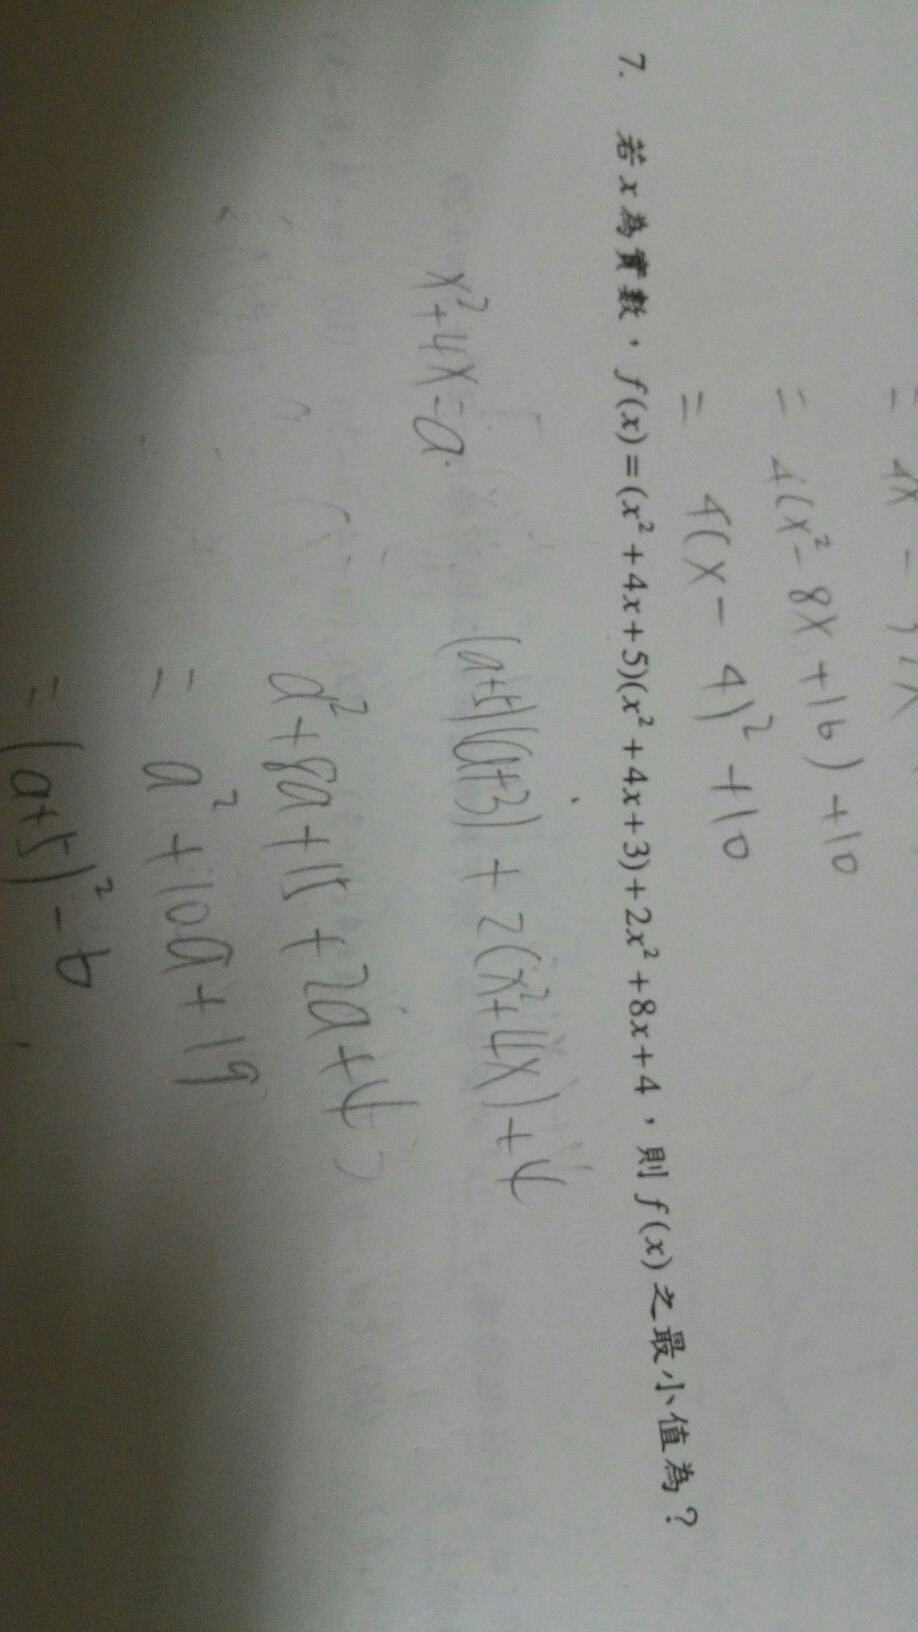 = 4(x² - 8x + 16) + 10
= 4(x - 4)² + 10
7. 若 x 為實數，f(x)=(x²+4x+5)(x²+4x+3)+2x²+8x+4，則 f(x) 之最小值為？
x²+4x=a.
(a+5)(a+3) + 2(x²+4x) + 4
a²+8a+15 + 2a+4
= a²+10a+19
= (a+5)²-6